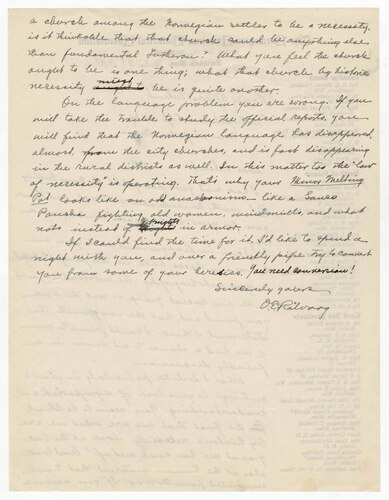 a church among the Norwegian settlers to be a necessity,
is it thinkable that that church could be anything else
than fundamental Lutheran? What you feel the church
ought to be is one thing; what that church by historic
necessity must be is quite another.
On the language problem you are wrong. If you
will take the trouble to study the official reports, you
will find that the Norwegian language has disappeared,
almost, from the city churches, and is fast disappearing
in the rural districts as well. In this matter too the law
of necessity is operating. That's why your Minor Melting
Pot looks like an old anachronism like a Sanso
Pansha fighting old women, windmills, and what
nots instead of knights in armor.
If I could find the time for it, I'd like to spend a
night with you, and over a friendly pipe try to convert
you from some of your heresies. You need conversion!
Sincerely yours
O E Rölvaag